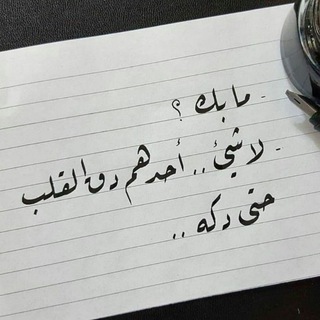 - ما بك ؟
- لا شيئ .. أحدهم دق القلب
حتى دكه ..